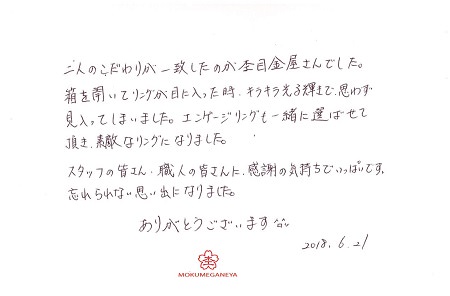 二人のこだわりが一致したのが杢目金屋さんでした。
箱を開いてリングが目に入った時、キラキラ光る輝きで、思わず
見入ってしまいました。エンゲージリングも一緒に選ばせて
頂き、素敵なリングになりました。
スタッフの皆さん・職人の皆さんに、感謝の気持ちでいっぱいです。
忘れられない思い出になりました。
ありがとうございます^^
2018.6.21
杢
MOKUMEGANEYA